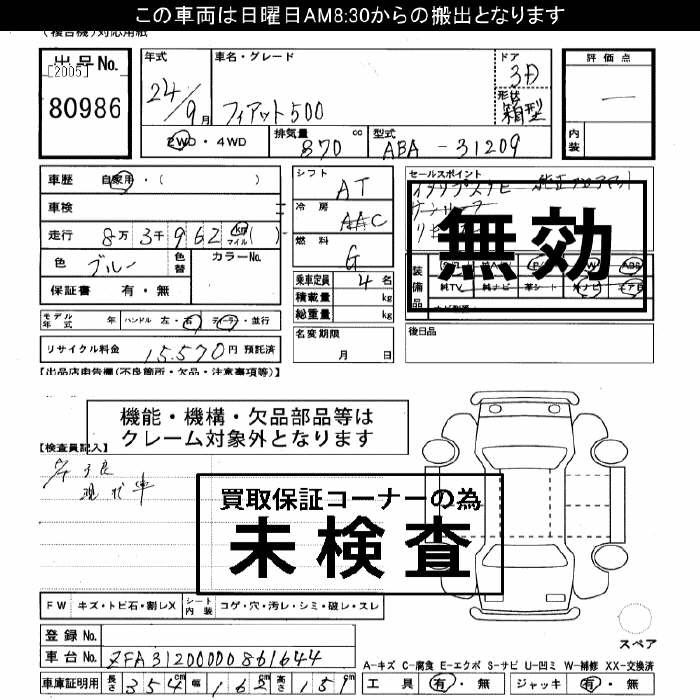 この車両は日曜日AM8:30からの搬出となります
(複合機)対応用紙
出品No. [2005] 80986
年式 24/9月
車名・グレード フィアット500
ドア 3D
形状 箱型
評価点 —
内装
2WD・4WD
排気量 870 cc
型式 ABA-31209
車歴 自家用・( )
車検
走行 8万3千962 km マイル( )
色 ブルー 色替 カラーNo.
保証書 有・無
シフト AT
冷房 AAC
燃料 G
乗車定員 4名
積載量 kg
総重量 kg
名変期限 月 日
セールスポイント
無効
装備品
純TV 純ナビ 革シート 外ナビ エアB
後日品
モデル年式 年 ハンドル 左・右 ディーラー・並行
リサイクル料金 15,570円 預託済
【出品店申告欄(不良箇所・欠品・注意事項等)】
機能・機構・欠品部品等は
クレーム対象外となります
【検査員記入】
現状車
買取保証コーナーの為
未検査
FW キズ・トビ石・割レX シート内装 コゲ・穴・汚レ・シミ・破レ・スレ
スペア
登録No.
車台No. ZFA3120000J861644
A-キズ C-腐食 E-エクボ S-サビ U-凹ミ W-補修 XX-交換済
車庫証明用 長さ 354cm 幅 162cm 高さ 151cm
工具 有・無 ジャッキ 有・無